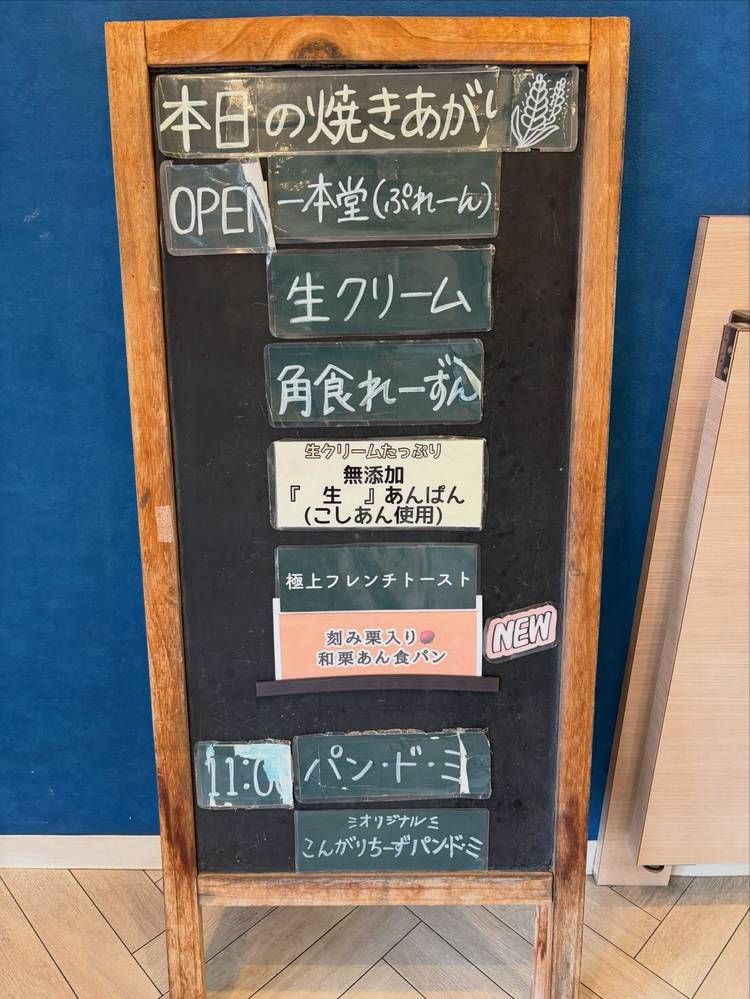 本日の焼きあがり
OPEN 一本堂(ぷれーん)
生クリーム
角食れーずん
生クリームたっぷり
無添加
『 生 』あんぱん
(こしあん使用)
極上フレンチトースト
刻み栗入り
和栗あん食パン
NEW
11:0 パン・ド・ミ
オリジナル
こんがりちーずパン・ド・ミ